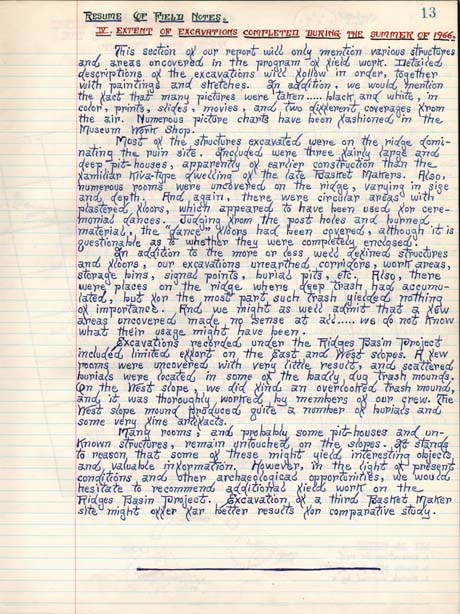 13
RESUME OF FIELD NOTES.
IV. EXTENT OF EXCAVATIONS COMPLETED DURING THE SUMMER OF 1966.
This section of our report will only mention various structures
and areas uncovered in the program of field work. Detailed
descriptions of the excavations will follow in order, together
with paintings and sketches. In addition, we would mention
the fact that many pictures were taken.... black and white, in
color, prints, slides, movies, and two different coverages from
the air. Numerous picture charts have been fashioned in the
Museum Work Shop.
Most of the structures excavated were on the ridge domi-
nating the ruin site. Included were three fairly large and
deep pit-houses, apparently of earlier construction than the
familiar Kiva-type dwelling of the late Basket Makers. Also,
numerous rooms were uncovered on the ridge, varying in size
and depth. And again, there were circular areas with
plastered floors, which appeared to have been used for cere-
monial dances. Judging from the post holes and burned
material, the "dance" floors had been covered, although it is
questionable as to whether they were completely enclosed.
In addition to the more or less well defined structures
and floors, our excavations unearthed corridors, work areas,
storage bins, signal points, burial pits, etc. Also, there
were places on the ridge where deep trash had accumu-
lated, but for the most part such trash yielded nothing
of importance. And we might as well admit that a few
areas uncovered made no sense at all..... we do not know
what their usage might have been.
Excavations recorded under the Ridges Basin Project
included limited effort on the East and West slopes. A few
rooms were uncovered with very little result, and scattered
burials were located in some of the badly dug trash mounds.
On the West slope, we did find an overlooked trash mound,
and it was thoroughly worked by members of our crew. The
West slope mound produced quite a nomber of burials and
some very fine artifacts.
Many rooms, and probably some pit-houses and un-
known structures, remain untouched on the slopes. It stands
to reason that some of these might yield interesting objects,
and valuable information. However, in the light of present
conditions and other archaeological opportunities, we would
hesitate to recommend additional field work on the
Ridges Basin Project. Excavation of a third Basket Maker
site might offer far better results for comparative study.